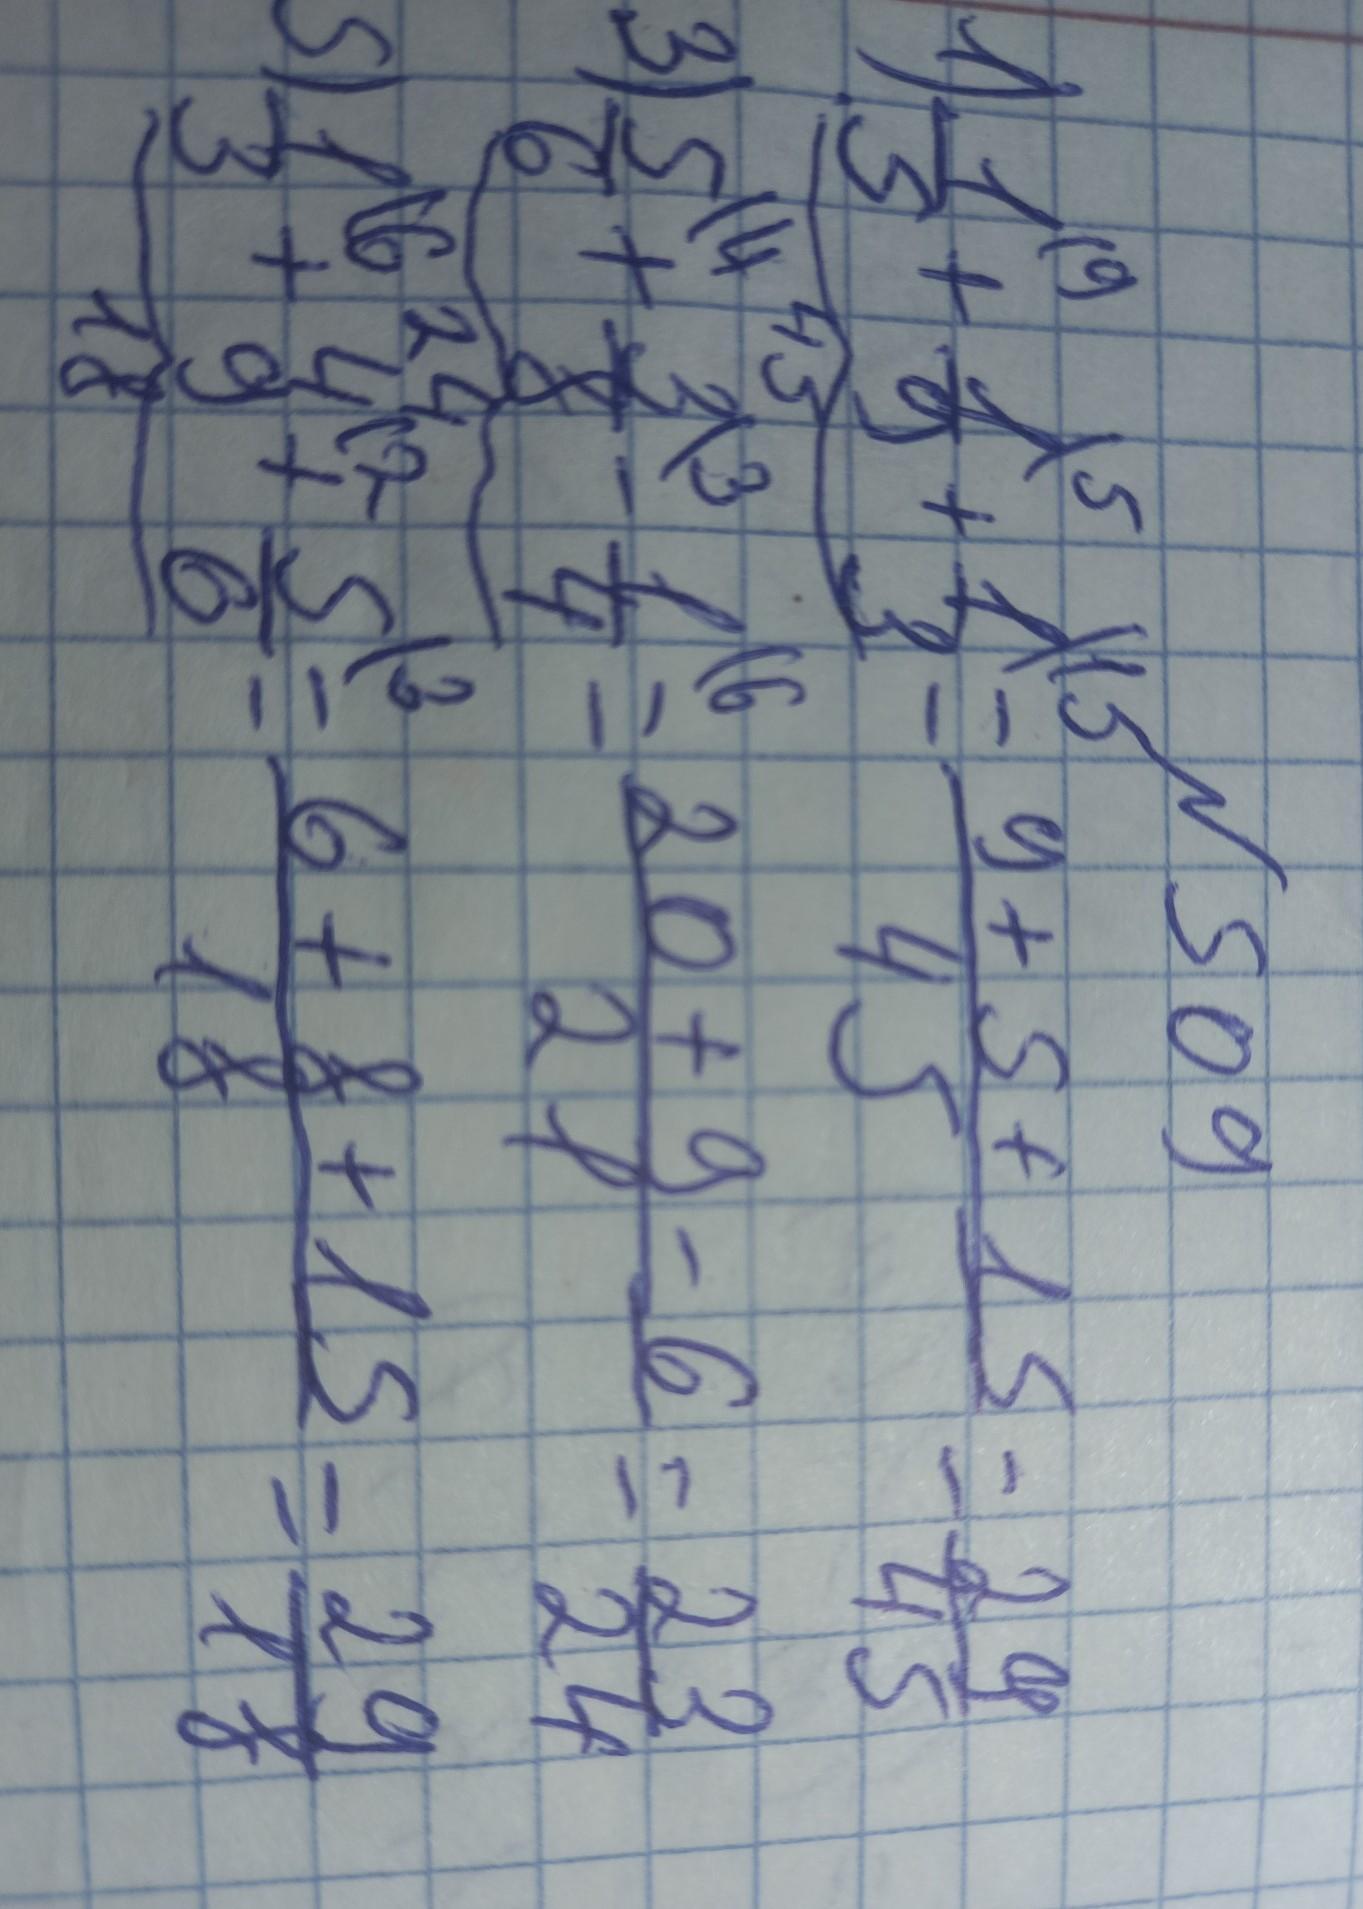 № 509
1) 1/5 \9 + 1/9 \5 + 1/3 \15 = (9+5+15)/45 = 29/45
45
3) 5/6 \4 + 3/8 \3 - 1/4 \6 = (20+9-6)/24 = 23/24
24
5) 1/3 \6 + 4/9 \2 + 5/6 \3 = (6+8+15)/18 = 29/18
18